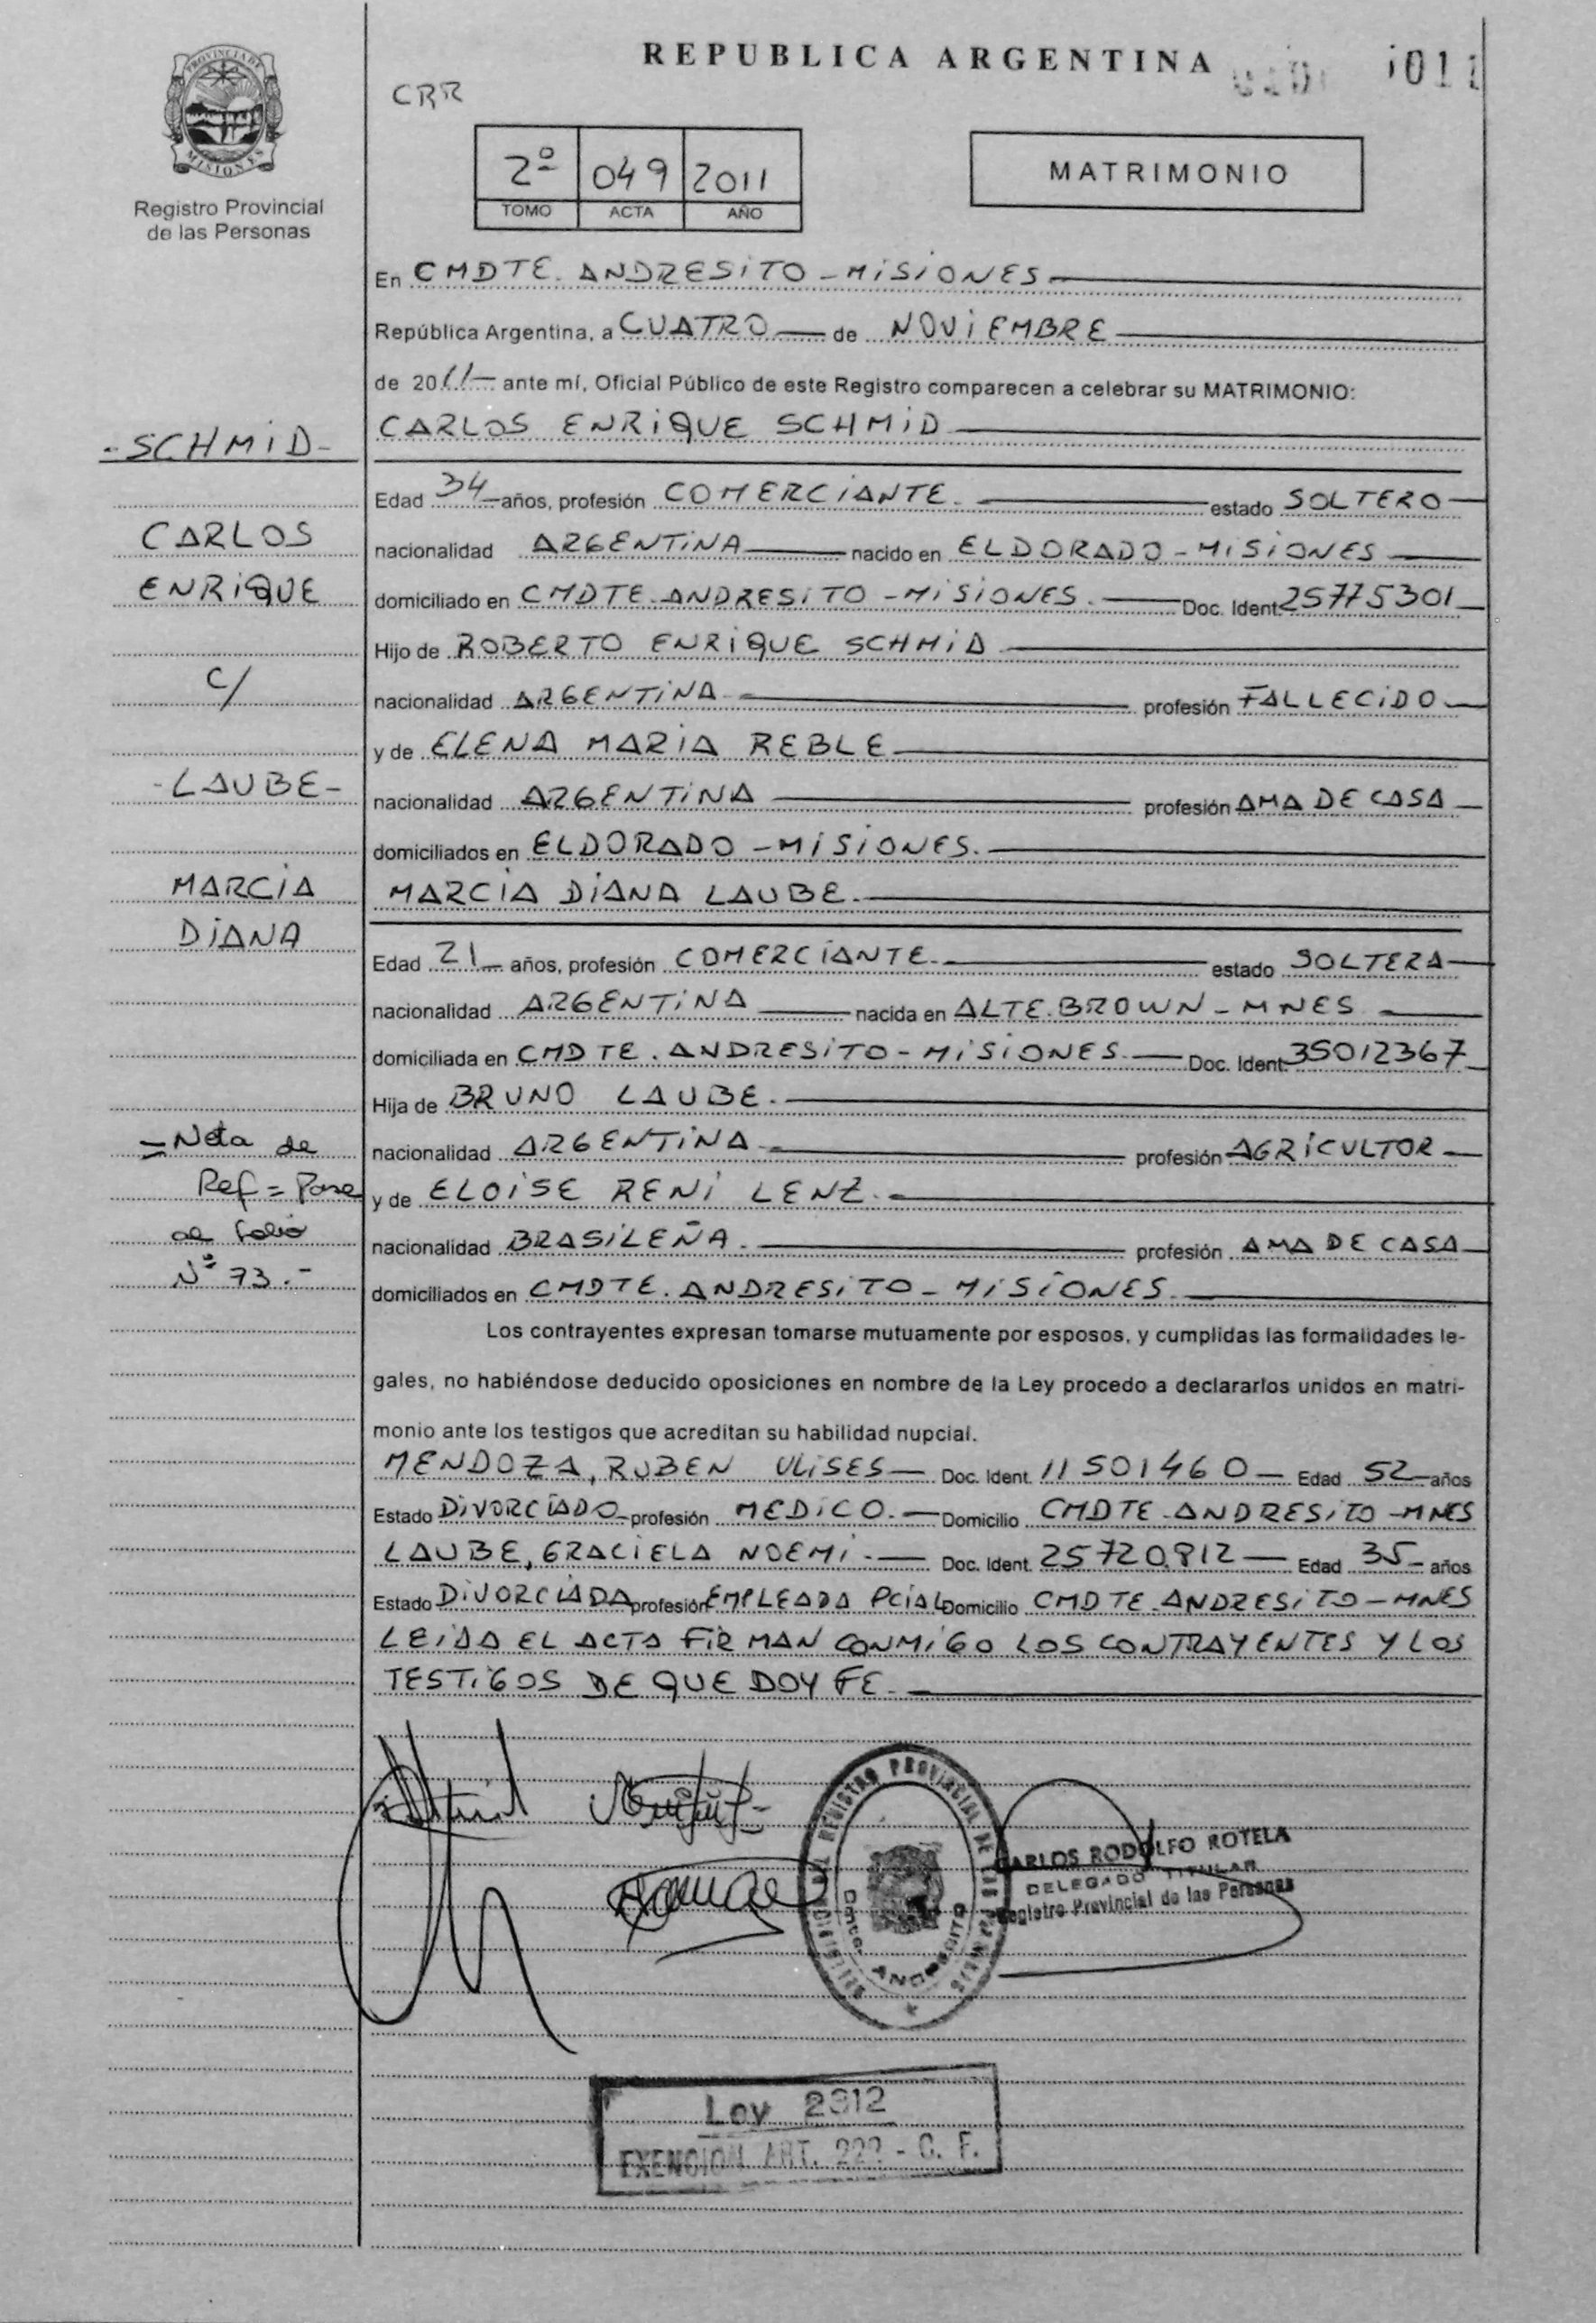 REPUBLICA ARGENTINA
CRR
PROVINCIA DE
MISIONES
Registro Provincial
de las Personas
2º 049 2011
TOMO ACTA AÑO
MATRIMONIO
En CMDTE. ANDRESITO - MISIONES
República Argentina, a CUATRO de NOVIEMBRE
de 2011 ante mí, Oficial Público de este Registro comparecen a celebrar su MATRIMONIO:
CARLOS ENRIQUE SCHMID
- SCHMID -
Edad 34 años, profesión COMERCIANTE. estado SOLTERO
CARLOS
nacionalidad ARGENTINA nacido en ELDORADO - MISIONES
ENRIQUE
domiciliado en CMDTE. ANDRESITO - MISIONES. Doc. Ident. 25775301
Hijo de ROBERTO ENRIQUE SCHMID
C/
nacionalidad ARGENTINA profesión FALLECIDO
y de ELENA MARIA REBLE
- LAUBE -
nacionalidad ARGENTINA profesión AMA DE CASA
domiciliados en ELDORADO - MISIONES.
MARCIA
MARCIA DIANA LAUBE.
DIANA
Edad 21 años, profesión COMERCIANTE. estado SOLTERA
nacionalidad ARGENTINA nacida en ALTE. BROWN - MNES
domiciliada en CMDTE. ANDRESITO - MISIONES. Doc. Ident. 35012367
Hija de BRUNO LAUBE.
= Nota de
nacionalidad ARGENTINA profesión AGRICULTOR
Ref = Pase
y de ELOISE RENI LENZ.
al folio
nacionalidad BRASILEÑA. profesión AMA DE CASA
Nº 73.-
domiciliados en CMDTE. ANDRESITO - MISIONES
Los contrayentes expresan tomarse mutuamente por esposos, y cumplidas las formalidades le-
gales, no habiéndose deducido oposiciones en nombre de la Ley procedo a declararlos unidos en matri-
monio ante los testigos que acreditan su habilidad nupcial.
MENDOZA, RUBEN ULISES Doc. Ident. 11501460 Edad 52 años
Estado DIVORCIADO profesión MEDICO. Domicilio CMDTE. ANDRESITO - MNES
LAUBE, GRACIELA NOEMI. Doc. Ident. 25720.812 Edad 35 años
Estado DIVORCIADA profesión EMPLEADA PCIAL Domicilio CMDTE. ANDRESITO - MNES
LEIDA EL ACTA FIRMAN CONMIGO LOS CONTRAYENTES Y LOS
TESTIGOS DE QUE DOY FE.
REGISTRO PROVINCIAL DE LAS PERSONAS
Cmte. ANDRESITO
CARLOS RODOLFO ROTELA
DELEGADO TITULAR
Registro Provincial de las Personas
Ley 2312
EXENCION ART. 222 - C. F.